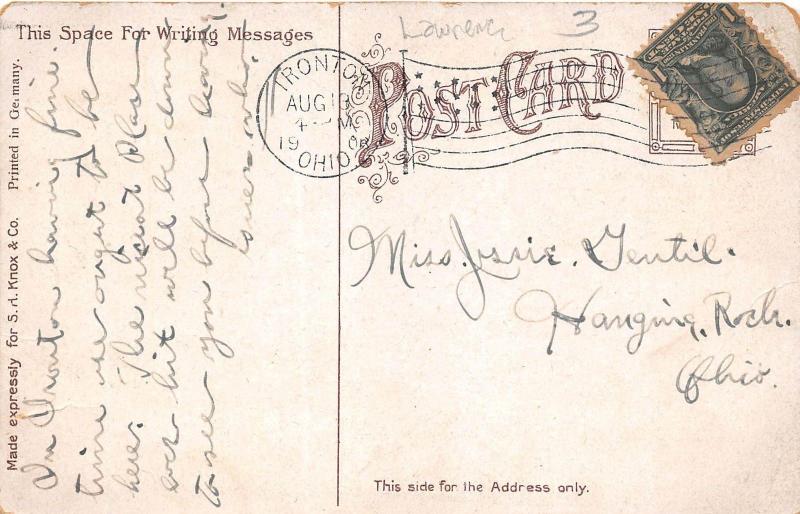 This Space For Writing Messages
Lawrence
3
POST CARD
IRONTON
AUG 13
4 - M
1908
OHIO
Made expressly for S. H. Knox & Co. Printed in Germany.
Im Ironton having fine
time you ought to be
here. The nicest Place
ever hit will be down
to see you before leaving.
Miss Jessie. Gentil.
Hanging, Rock.
Ohio.
This side for the Address only.